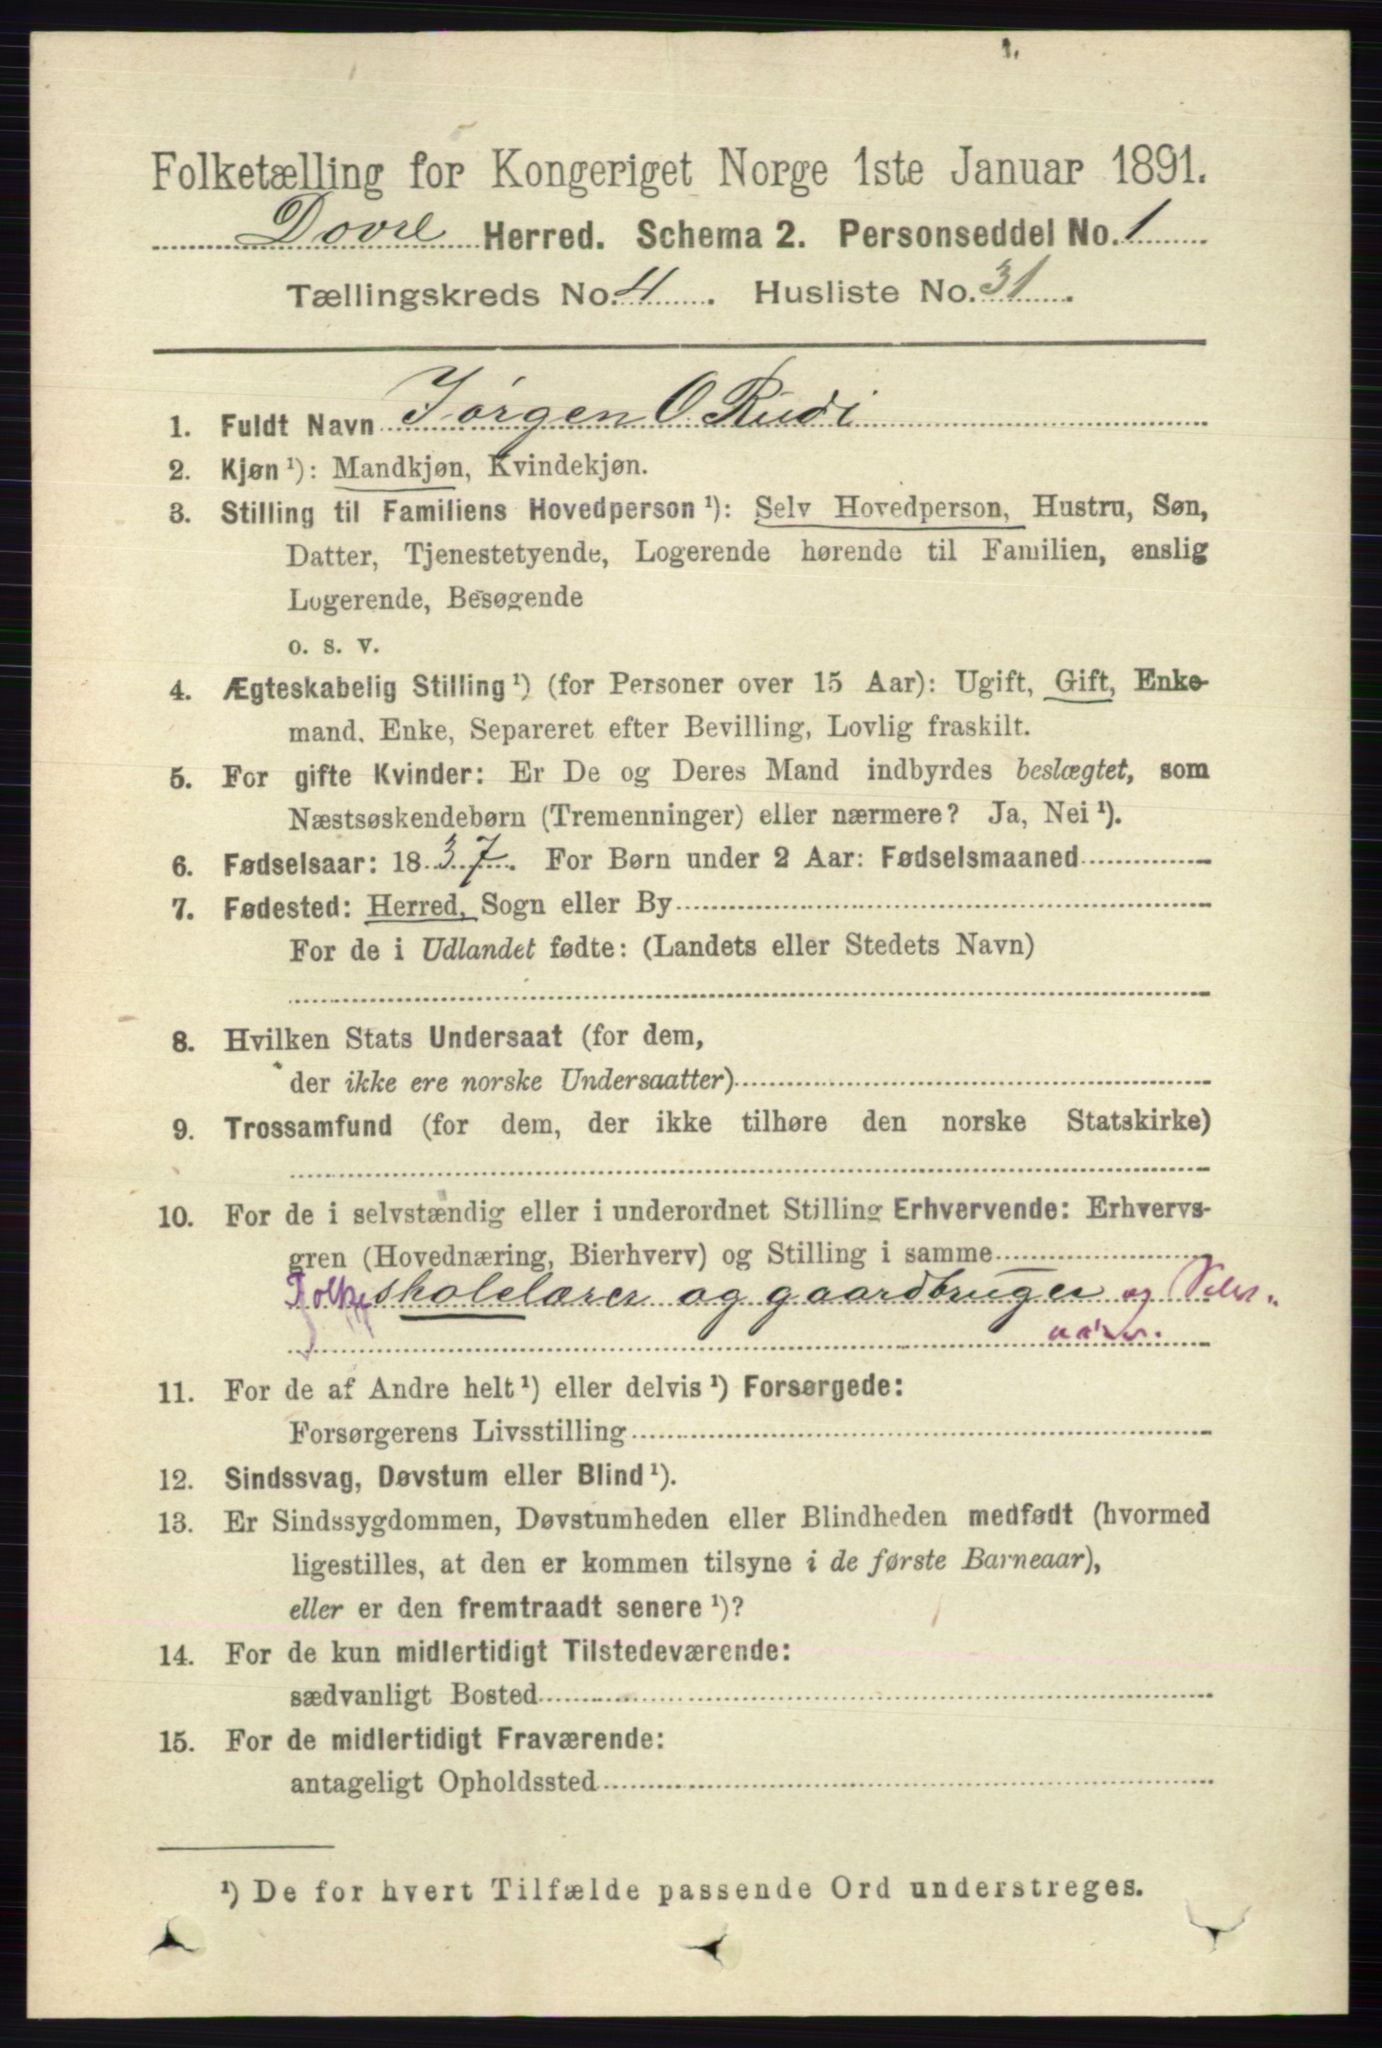 1.
Folketælling for Kongeriget Norge 1ste Januar 1891.
Dovre Herred. Schema 2. Personseddel No. 1
Tællingskreds No. 4. Husliste No. 31.
1. Fuldt Navn Jørgen O Rudi
2. Kjøn ¹): Mandkjøn, Kvindekjøn.
3. Stilling til Familiens Hovedperson ¹): Selv Hovedperson, Hustru, Søn,
Datter, Tjenestetyende, Logerende hørende til Familien, enslig
Logerende, Besøgende
o. s. v.
4. Ægteskabelig Stilling ¹) (for Personer over 15 Aar): Ugift, Gift, Enke-
mand, Enke, Separeret efter Bevilling, Lovlig fraskilt.
5. For gifte Kvinder: Er De og Deres Mand indbyrdes beslægtet, som
Næstsøskendebørn (Tremenninger) eller nærmere? Ja, Nei ¹).
6. Fødselsaar: 1837. For Børn under 2 Aar: Fødselsmaaned
7. Fødested: Herred, Sogn eller By
For de i Udlandet fødte: (Landets eller Stedets Navn)
8. Hvilken Stats Undersaat (for dem,
der ikke ere norske Undersaatter)
9. Trossamfund (for dem, der ikke tilhøre den norske Statskirke)
10. For de i selvstændig eller i underordnet Stilling Erhvervende: Erhvervs-
gren (Hovednæring, Bierhverv) og Stilling i samme
Folkeskolelærer og gaardbruger og
11. For de af Andre helt ¹) eller delvis ¹) Forsørgede:
Forsørgerens Livsstilling
12. Sindssvag, Døvstum eller Blind ¹).
13. Er Sindssygdommen, Døvstumheden eller Blindheden medfødt (hvormed
ligestilles, at den er kommen tilsyne i de første Barneaar),
eller er den fremtraadt senere ¹)?
14. For de kun midlertidigt Tilstedeværende:
sædvanligt Bosted
15. For de midlertidigt Fraværende:
antageligt Opholdssted
¹) De for hvert Tilfælde passende Ord understreges.